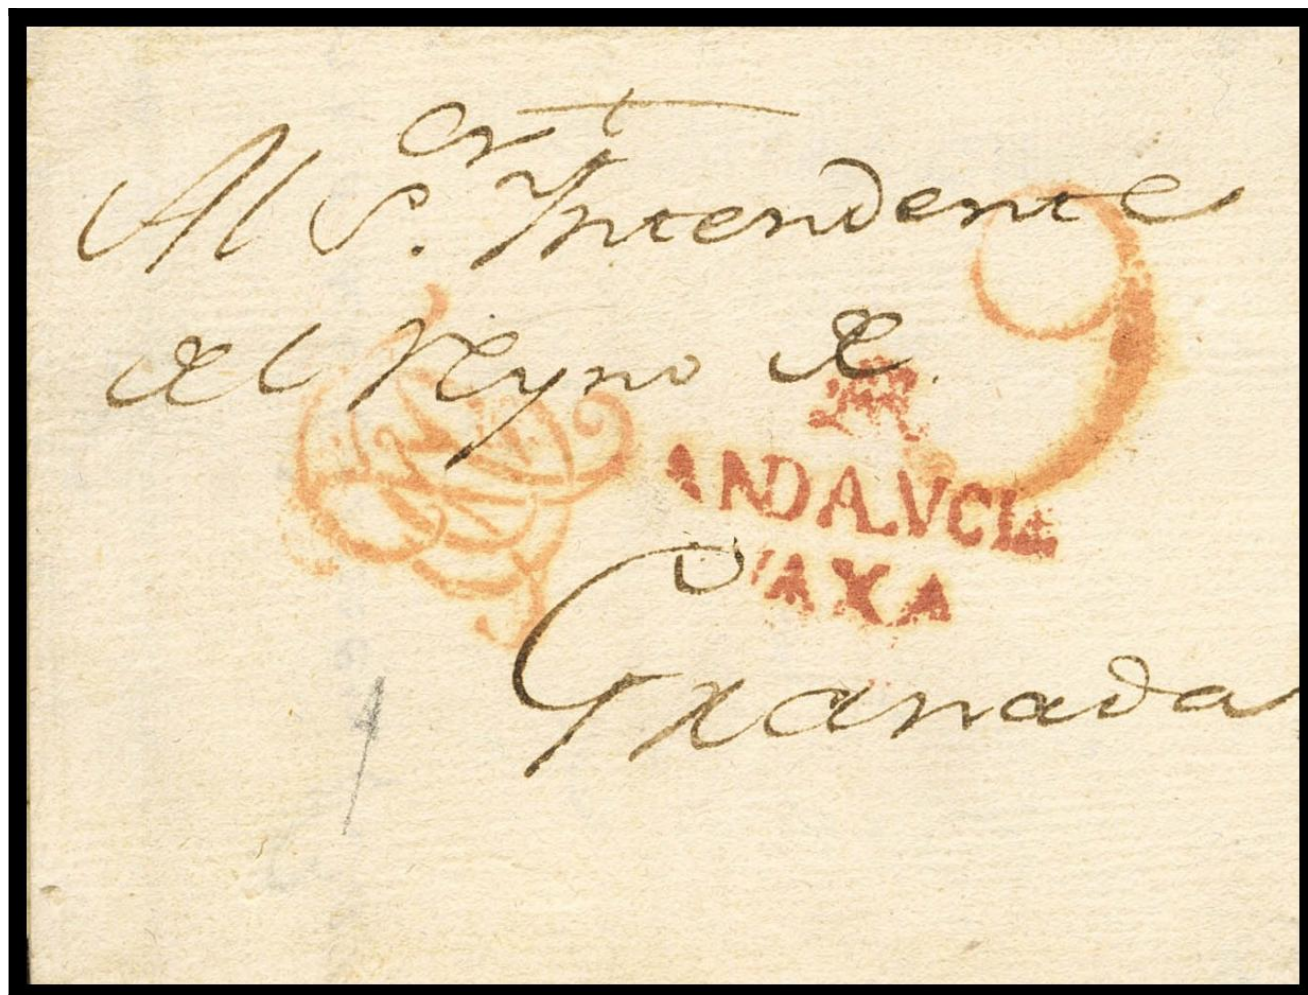 Al Sor. Yntendente
del Reyno de.
9
ANDALVCIA
VAXA
Granada